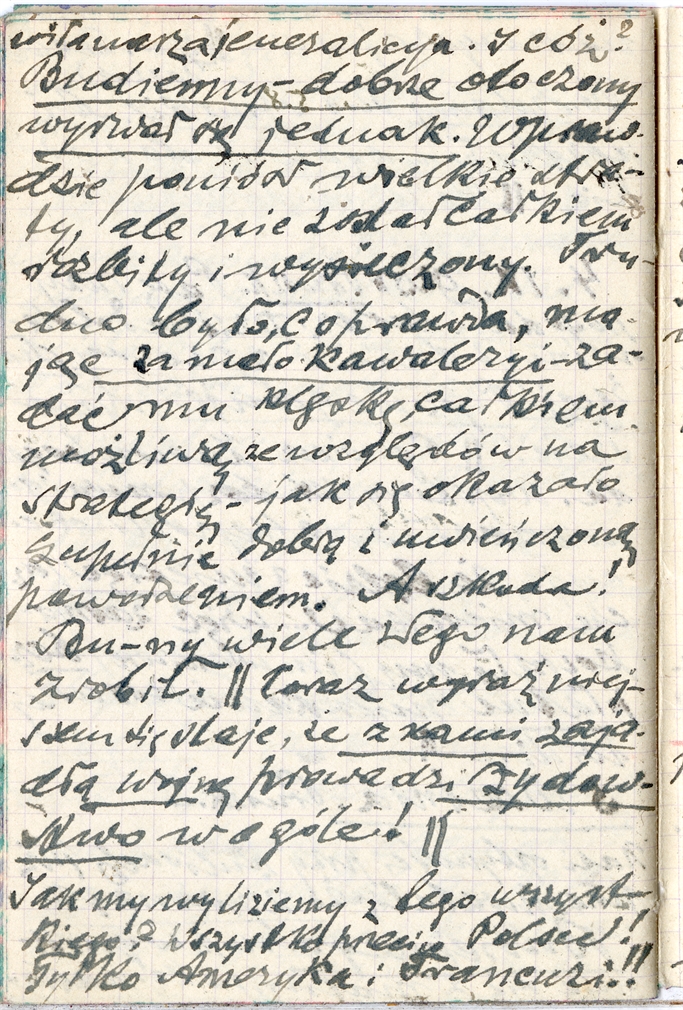 jeneralicja. I cóż?
Budienny – dobrze otoczony
wyrwał się jednak. Wpraw-
dzie poniósł wielkie stra-
ty, ale nie został całkiem
rozbity i wysieczony. Tru-
dno było, coprawda, ma-
jąc za mało kawaleryi – za-
dać mu klęskę całkiem
możliwą ze względów na
strategię, – jak się okazało
zupełnie dobrą i uwieńczoną
powodzeniem. A szkoda!
Bu-ny wiele złego nam
zrobił. || Coraz wyraźniej-
szem się staje, że z nami zaja-
dłą wojnę prowadzi Żydow-
stwo w ogóle! ||
Jak my wyliziemy z tego wszyst-
kiego? Wszystko przeciw Polsce!
Tylko Ameryka i Francuzi!!